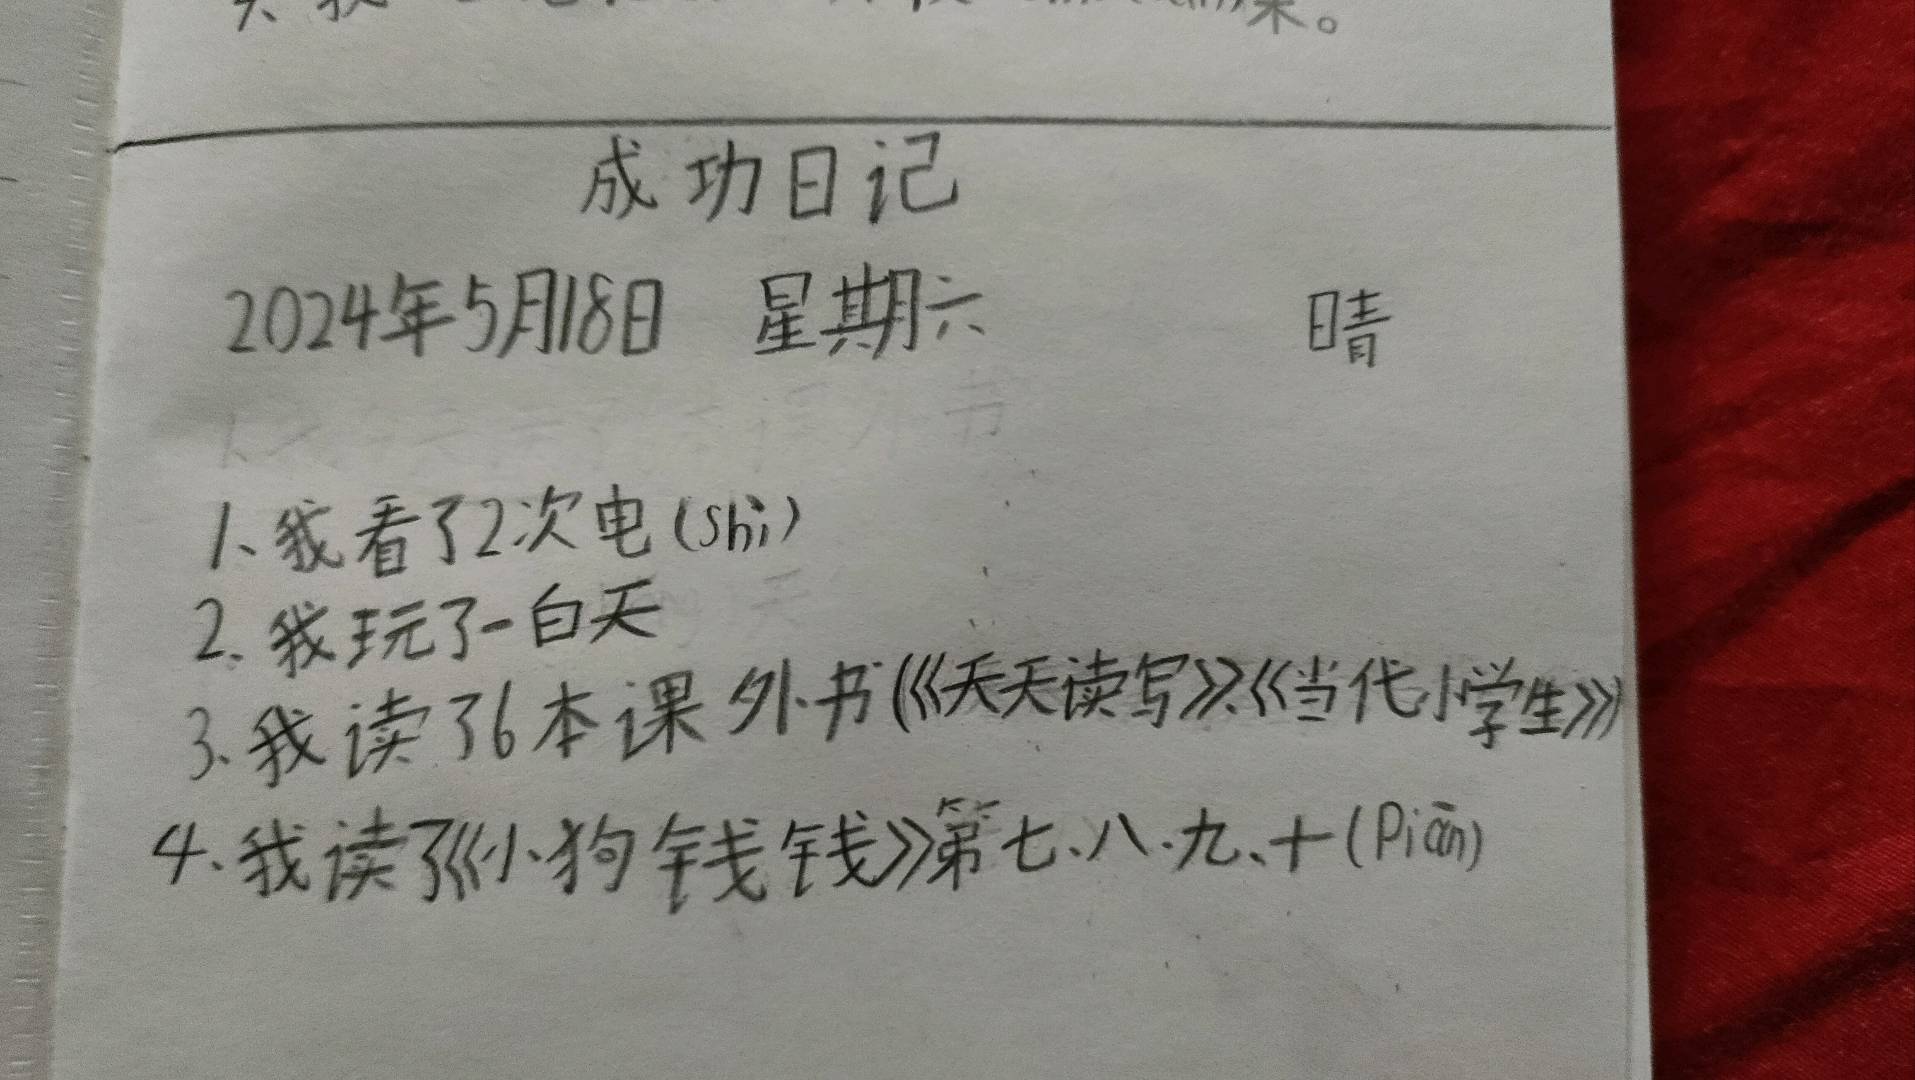 成功日记
2024年5月18日 星期六 晴
1、我看了2次电(shi)
2、我玩了一白天
3、我读了6本课外书(《天天读写》、《当代小学生》)
4、我读了《小狗钱钱》第七、八、九、十(Piān)